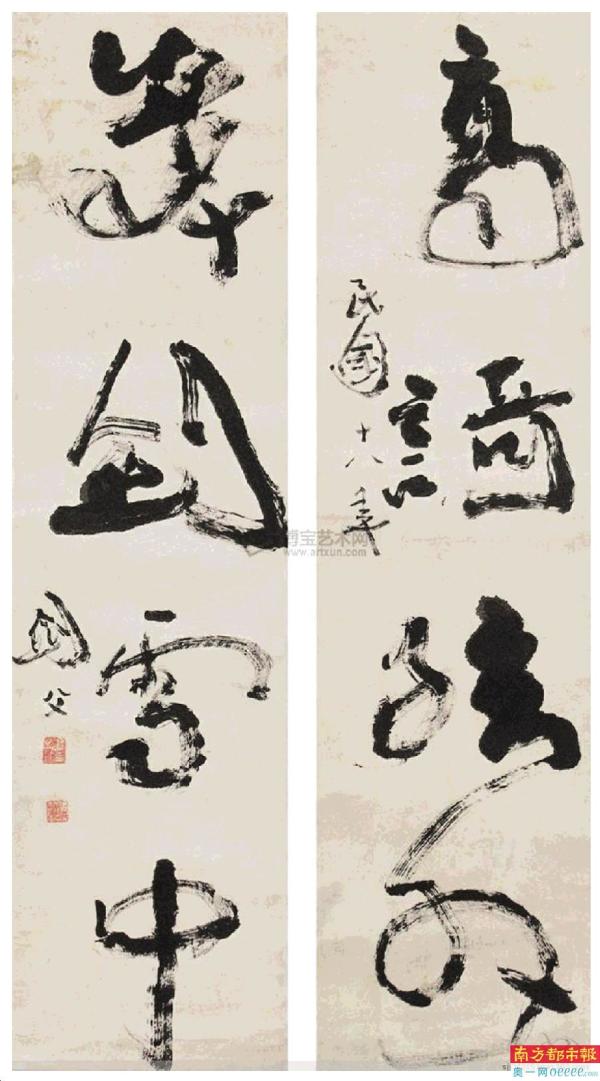 高謌絃外
民國十八年
舞劍雪中
劍父
博宝艺术网
www.artxun.com
南方都市報
奥一网oeeee.com